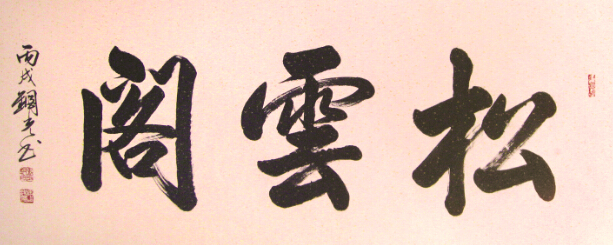 松雲閣
丙戌